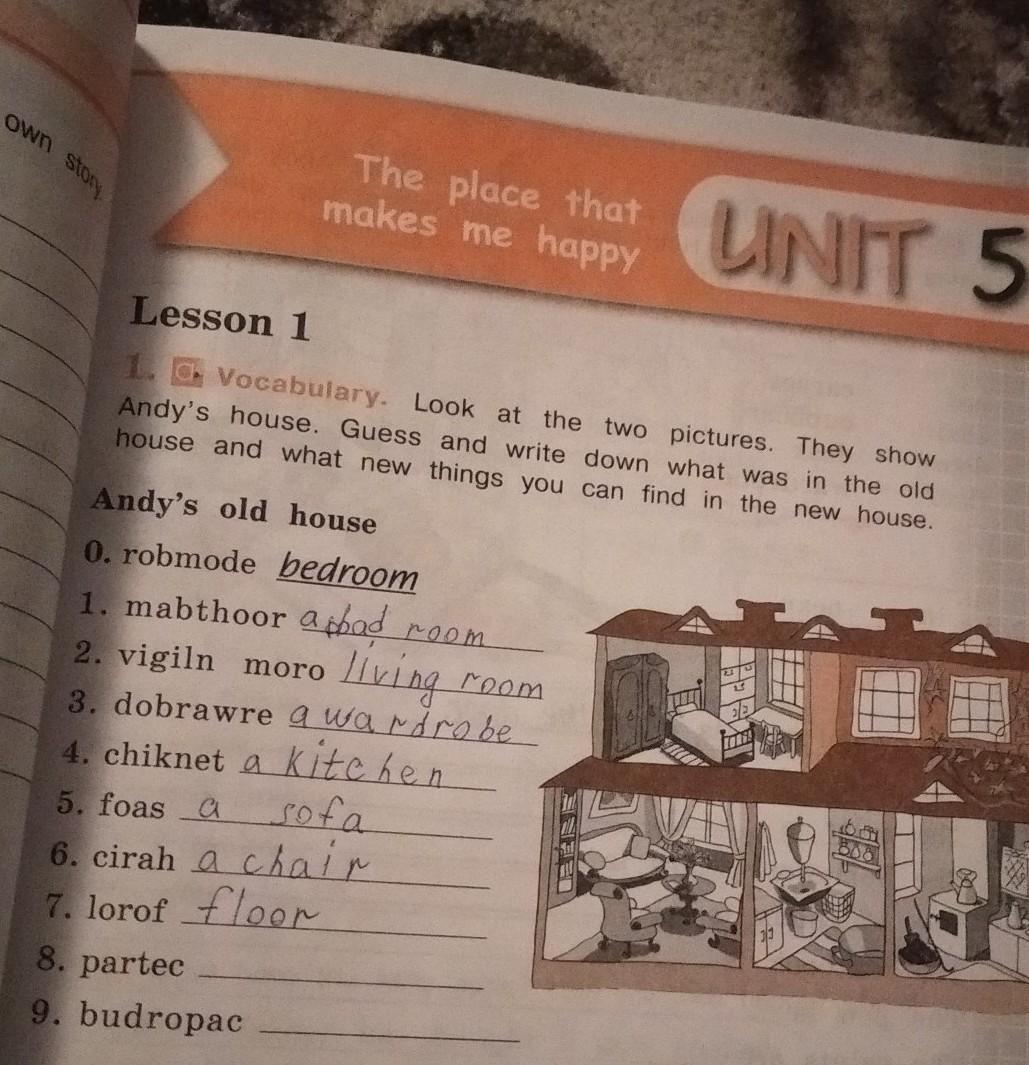 own story.
The place that
makes me happy
UNIT 5
Lesson 1
1. Vocabulary. Look at the two pictures. They show
Andy's house. Guess and write down what was in the old
house and what new things you can find in the new house.
Andy's old house
0. robmode bedroom
1. mabthoor a bad room
2. vigiln moro living room
3. dobrawre a wardrobe
4. chiknet a kitchen
5. foas a sofa
6. cirah a chair
7. lorof floor
8. partec
9. budropac